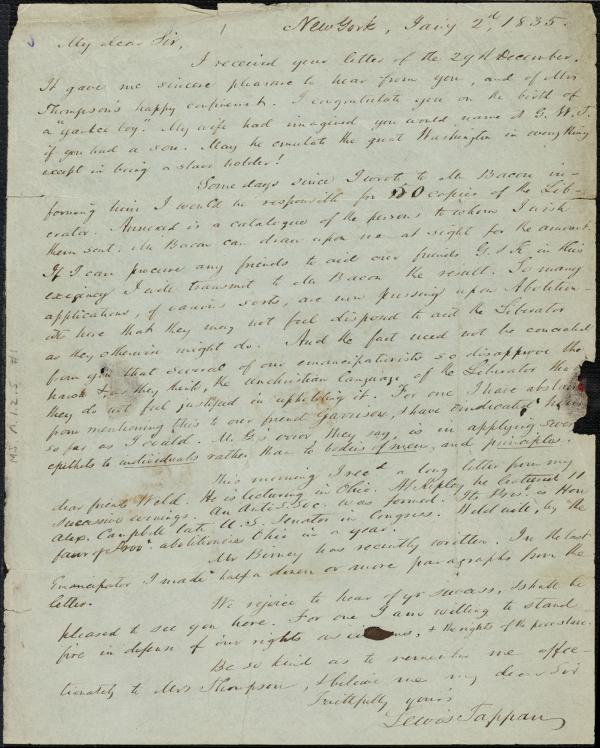 New York, Jany 2d, 1835.
My dear Sir,
I received your letter of the 29th December.
It gave me sincere pleasure to hear from you, and of Mrs
Thompson's happy confinement. I congratulate you on the birth of
a "yankee boy." My wife had imagined you would name it G. W. T.
if you had a son. May he emulate the great Washington in everything
except in being a slave holder!
Some days since I wrote to Mr Bacon in-
forming him I would be responsible for copies of the Lib-
erator. Annexed is a catalogue of the persons to whom I wish
them sent. Mr Bacon can draw upon me at sight for the amount.
If I can procure any friends to aid our friends G. & K. in this
exigency I will transmit to Mr Bacon the result. So many
applications, of various sorts, are now pressing upon Abolition-
ists here that they may not feel disposed to aid the Liberator
as they otherwise might do. And the fact need not be concealed
from you that several of our emancipationists so disapprove the
harsh & as they think, the unchristian language of the Liberator that
they do not feel justified in upholding it. For one I have abstained
from mentioning this to our friend Garrison, & have vindicated him
so far as I could. Mr G's error they say, is in applying severe
epithets to individuals rather than to bodies of men, and principles.
This morning I recd a long letter from my
dear friend Weld. He is lecturing in Ohio. At Ripley he lectured 11
successive evenings. An Anti S. Soc. was formed. Its Pres. is Hon.
Alex. Campbell late U. S. Senator in Congress. Weld will, by the
favr of abolitionize Ohio in a year.
Mr Birney has recently written. In the last
Emancipator I made half a dozen or more paragraphs from the
letter.
We rejoice to hear of yr success, & shall be
pleased to see you here. For one I am willing to stand
fire in defense of our rights as & the rights of the
Be so kind as to remember me affec-
tionately to Mrs Thompson, & believe me my dear Sir
Faithfully yours
Lewis Tappan
MS. A.1.2.5 #1